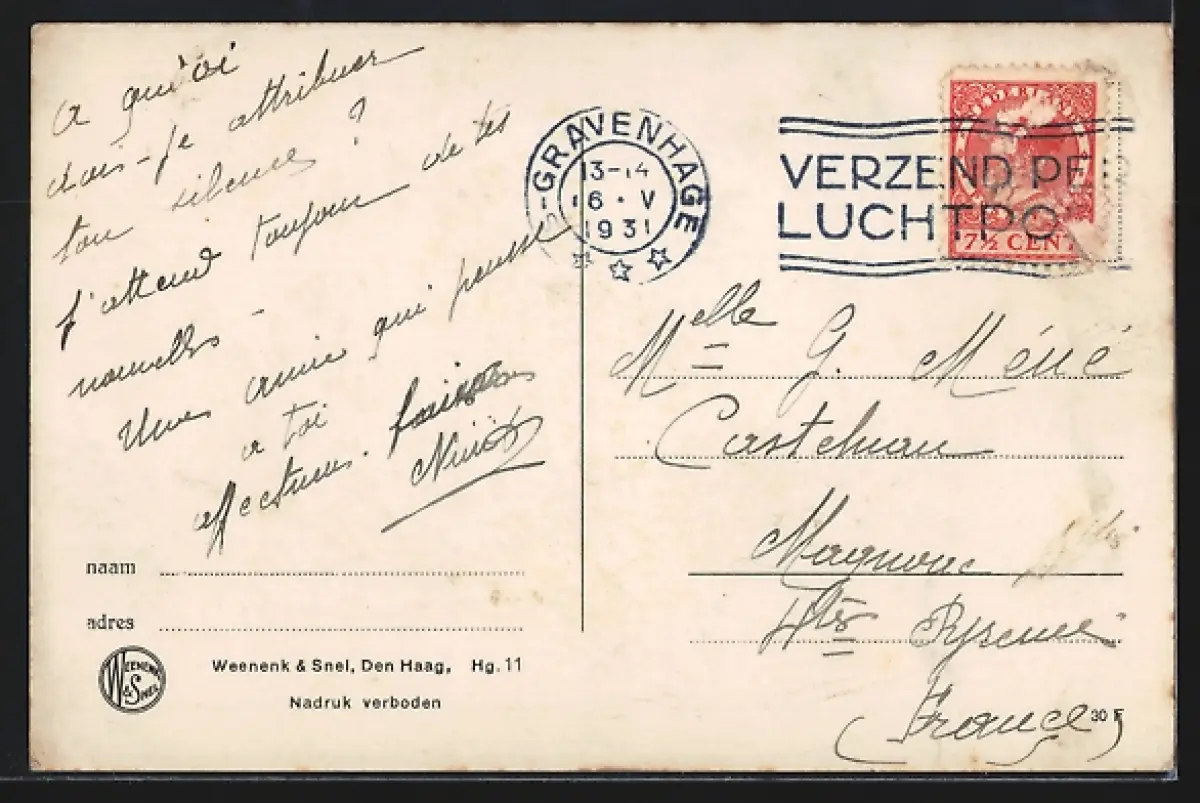 a qu'oi
dois-je attribuer
ton silence ?
J'attend toujour de tes
nouvelles -
Une amie qui pense
a toi
affectueus.
naam
adres
WEENENK & SNEL
Weenenk & Snel, Den Haag, Hg. 11
Nadruk verboden
'S-GRAVENHAGE
13-14
16 · V
1931
VERZEND PE
LUCHTPO
NEDERLAND
7½ CENT
Melle G. Méné
Castelnau
Magnoac
Htes Pyrenée
(France)
30 F